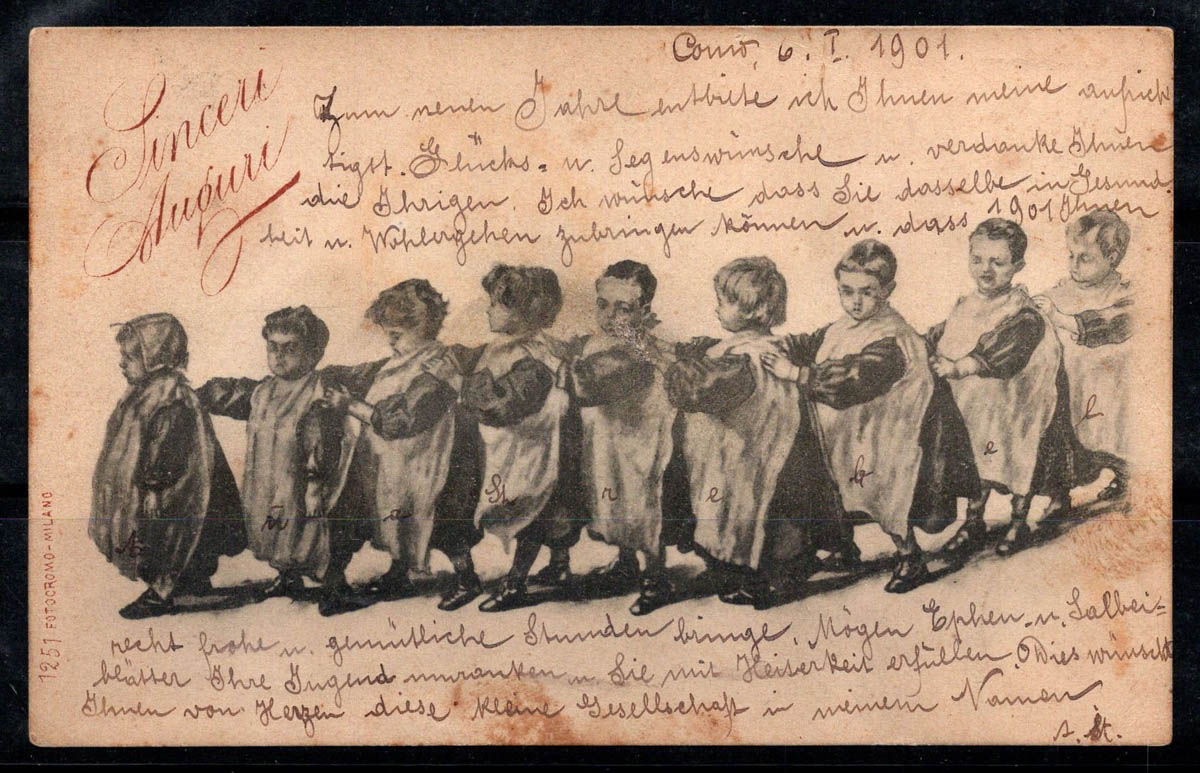 Como, 6. I. 1901.
Sinceri
Auguri
Zum neuen Jahre entbiete ich Ihnen meine aufrich
tigst. Glücks= u. Segenswünsche u. verdanke Ihnen
die Ihrigen. Ich wünsche dass Sie dasselbe in Gesund
heit u. Wohlergehen zubringen können u. dass 1901 Ihnen
A n n a St r e b e l
recht frohe u. gemütliche Stunden bringe. Mögen Epheu- u. Salbei=
blätter Ihre Jugend umranken u. Sie mit Heiserkeit erfüllen. Dies wünscht
Ihnen von Herzen diese kleine Gesellschaft in meinem Namen
A. St.
1251 FOTOCROMO-MILANO